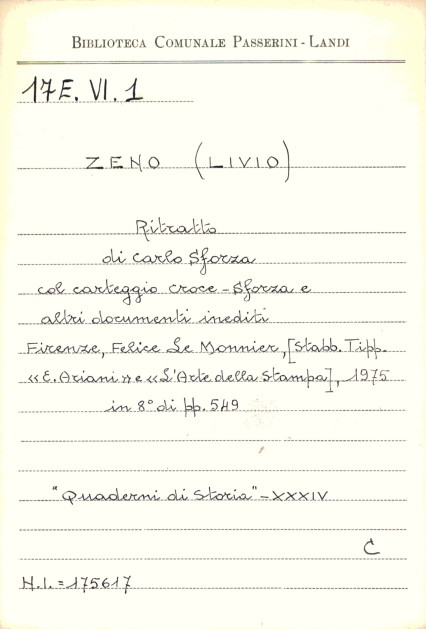 BIBLIOTECA COMUNALE PASSERINI - LANDI
17E. VI. 1
ZENO (LIVIO)
Ritratto
di Carlo Sforza
col carteggio Croce - Sforza e
altri documenti inediti
Firenze, Felice Le Monnier, [Stabb. Tipp.
«E. Ariani» e «L'Arte della Stampa], 1975
in 8° di pp. 549
"Quaderni di Storia" - XXXIV
C
N.I. = 175617